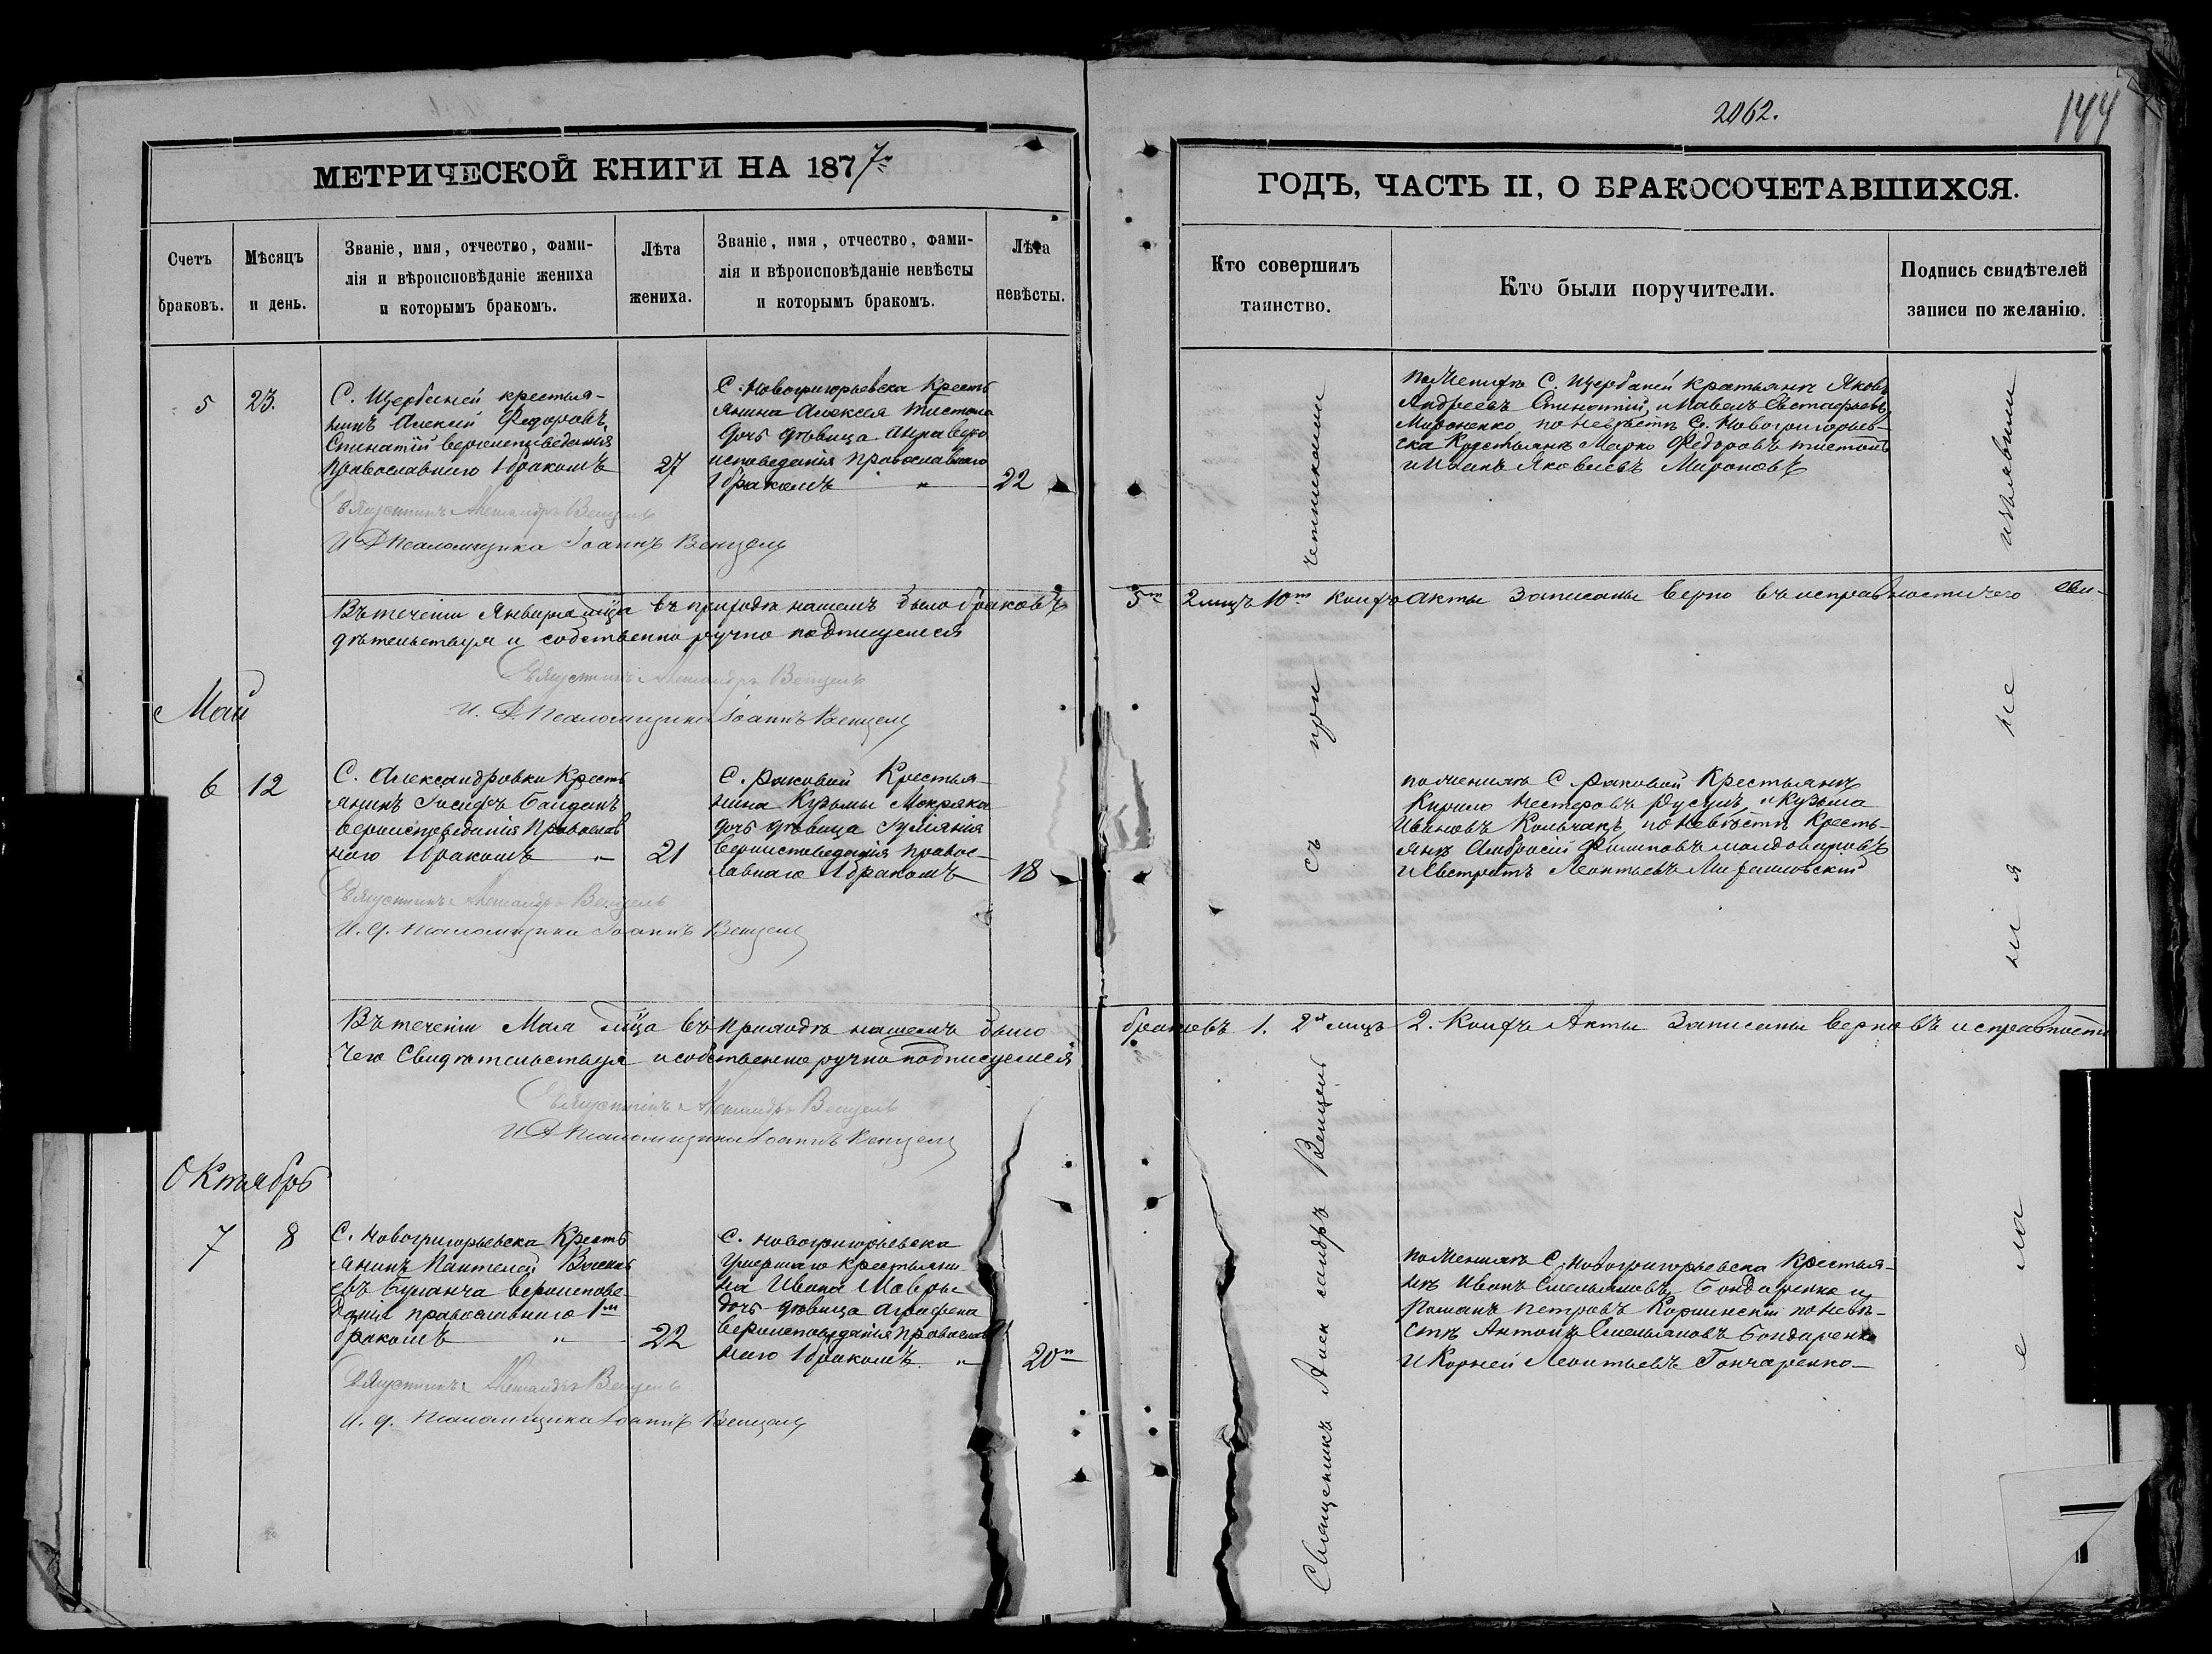 2062.
144
МЕТРИЧЕСКОЙ КНИГИ НА 1877
ГОДЪ, ЧАСТЬ II, О БРАКОСОЧЕТАВШИХСЯ.
Счетъ
браковъ.
Мѣсяцъ
и день.
Званіе, имя, отчество, фами-
лія и вѣроисповѣданіе жениха
и которымъ бракомъ.
Лѣта
жениха.
Званіе, имя, отчество, фами-
лія и вѣроисповѣданіе невѣсты
и которымъ бракомъ.
Лѣта
невѣсты.
Кто совершилъ
таинство.
Кто были поручители.
Подпись свидѣтелей
записи по желанію.
5
23.
С. Щербаней крестья-
нинъ Алексій Федоровъ
вероисповеданія
православнаго 1 бракомъ
27
С. Новогригорьевска Кресть
янина Алексея
дочь дѣвица Анна веро
исповеданія православнаго
1 бракомъ
22
По Жениху С. Щербаней крестьяне Яковъ
Андреевъ и Павелъ Евстафьевъ
Мироненко по невѣсте С. Новогригорьев-
ска Крестьяне Марко Федоровъ
и Иванъ Яковлевъ Мироновъ
Александръ Венцель
И Д Псаломщика Іоаннъ Венцель
Въ теченіи Января м-ца въ приходѣ нашемъ было браковъ 5 лицъ 10 Коихъ акты записаны верно въ исправности чего сви-
дѣтельствуя и собственно ручно подписуемся
Александръ Венцель
И. Д. Псаломщика Іоаннъ Венцель
Май
6
12
С. Александровки Кресть
янинъ Іосифъ
вероисповеданія Православ
наго 1 бракомъ
21
С. Раковой Крестья-
нина Кузьмы Мокряка
дочь дѣвица
вероисповеданія правос-
лавнаго 1 бракомъ
18
по жениху С. Раковой Крестьяне
Кирило Нестеровъ и Кузьма
Ивановъ Колычакъ, по невѣсте Кресть-
яне Амбросій Филиповъ
и Евстратъ Леонтьевъ
Александръ Венцель
И. д. псаломщика Іоаннъ Венцель
Въ теченіи Мая м-ца въ приходѣ нашемъ было браковъ 1. лицъ 2. Коихъ Акты Записаны верно въ исправности
Чего Свидѣтельствуя и собственно ручно подписуемся
Александръ Венцель
И Д Псаломщика Іоаннъ Венцель
Октябрь
7
8
С. Новогригорьевска Кресть
янинъ Пантелей
вероиспове-
данія православнаго 1м
бракомъ
22
С. Новогригорьевска
умершаго крестьяни-
на Ивана
дочь дѣвица Аграфена
вероисповеданія православ
наго 1 бракомъ
20
по жениху С. Новогригорьевска Крестья-
не Иванъ Емельяновъ Бондаренко и
Романъ Петровъ по невѣ-
сте Антонъ Емельяновъ Бондаренко
и Корней Леонтьевъ Гончаренко
Александръ Венцель
И. д. псаломщика Іоаннъ Венцель
Священникъ Александръ Венцель
съ при
не